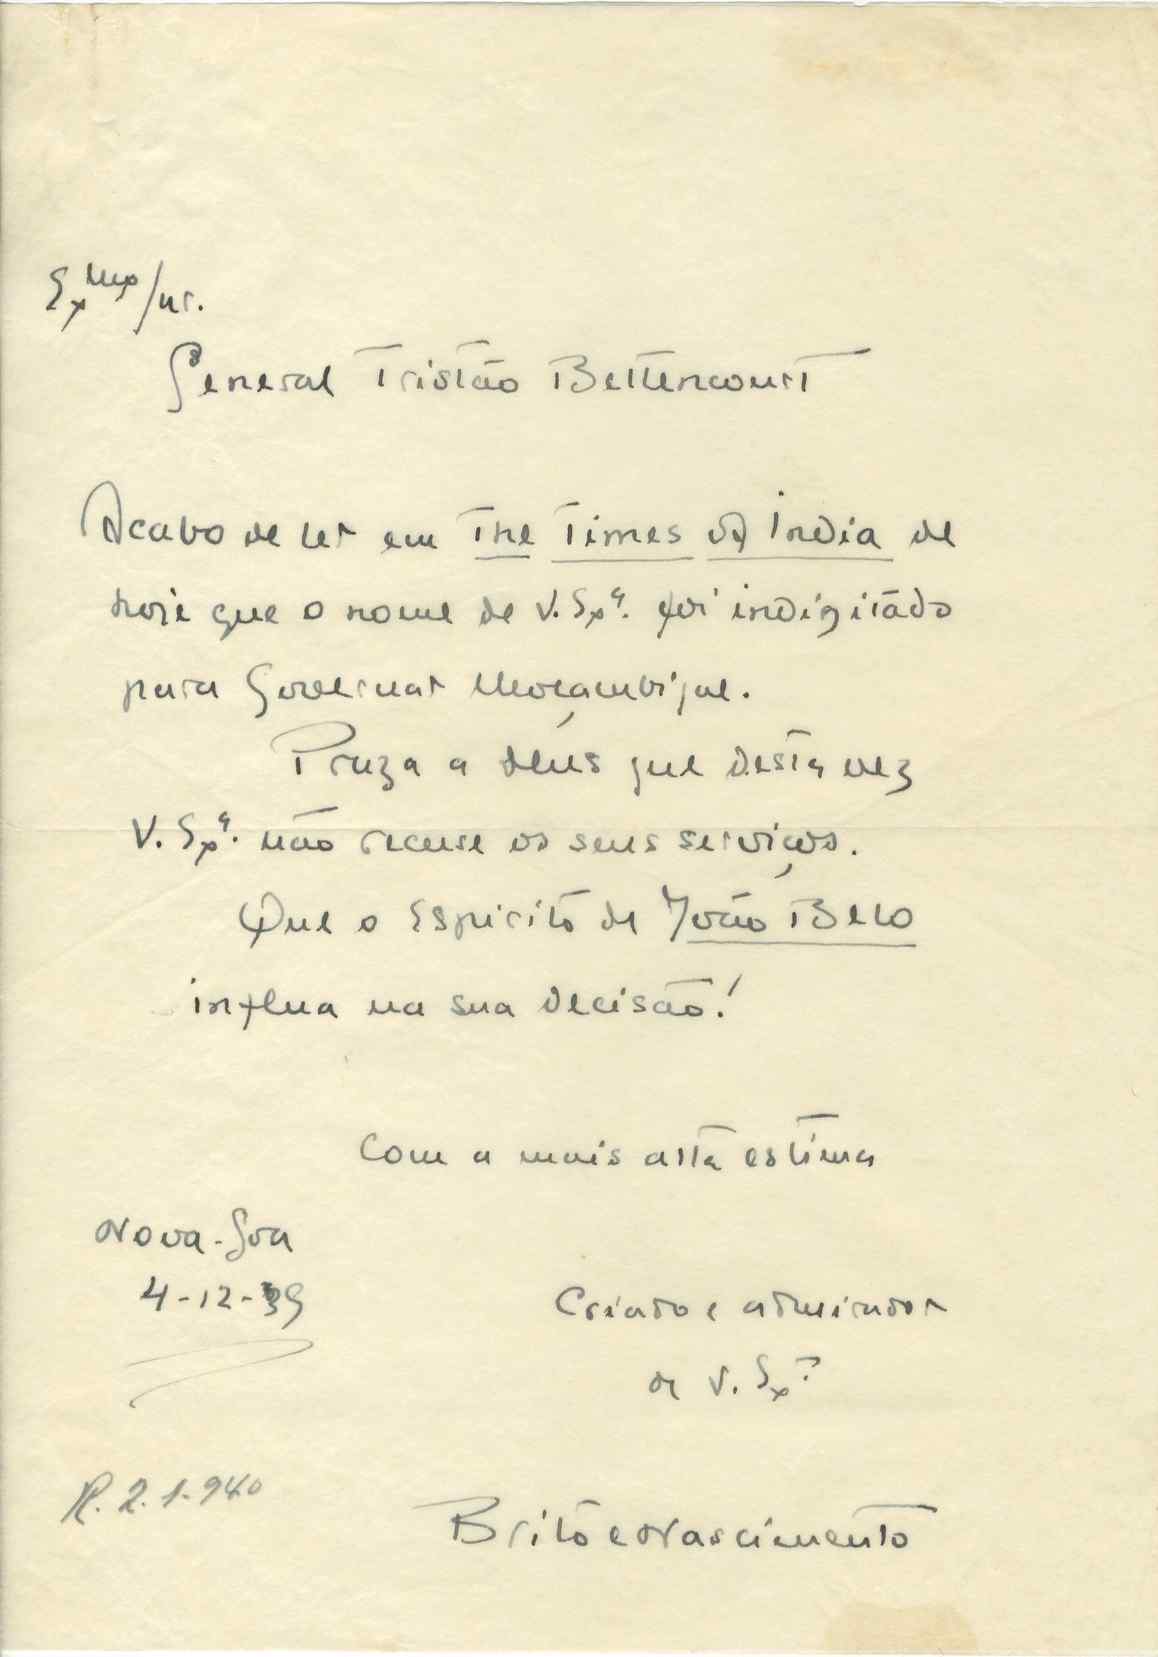 Exmo Snr.
General Tristão Bettencourt
Acabo de ler em The Times of India de
hoje que o nome de V. Exª. foi indigitado
para Governar Moçambique.
Praza a Deus que desta vez
V. Exª. não recuse os seus serviços.
Que o Espirito de João Belo
influa na sua decisão!
Com a mais alta estima
Nova-Goa
4-12-39
Criado e admirador
de V. Exª
R. 2.1.940
Brito e Nascimento